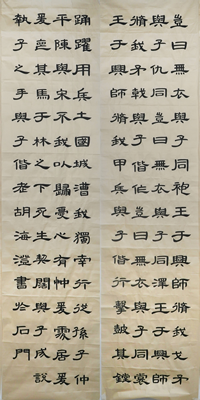 豈曰無衣與子同袍王于興師脩我戈矛
與子同仇豈曰無衣與子同澤王于興師
脩我矛戟與子偕作豈曰無衣與子同裳
王于興師脩我甲兵與子偕行擊鼓其鏜
踊躍用兵土國城漕我獨南行從孫子仲
平陳與宋不我以歸憂心有忡爰居爰處
爰喪其馬于林之下死生契闊與子成說
執子之手與子偕老胡海書於石門